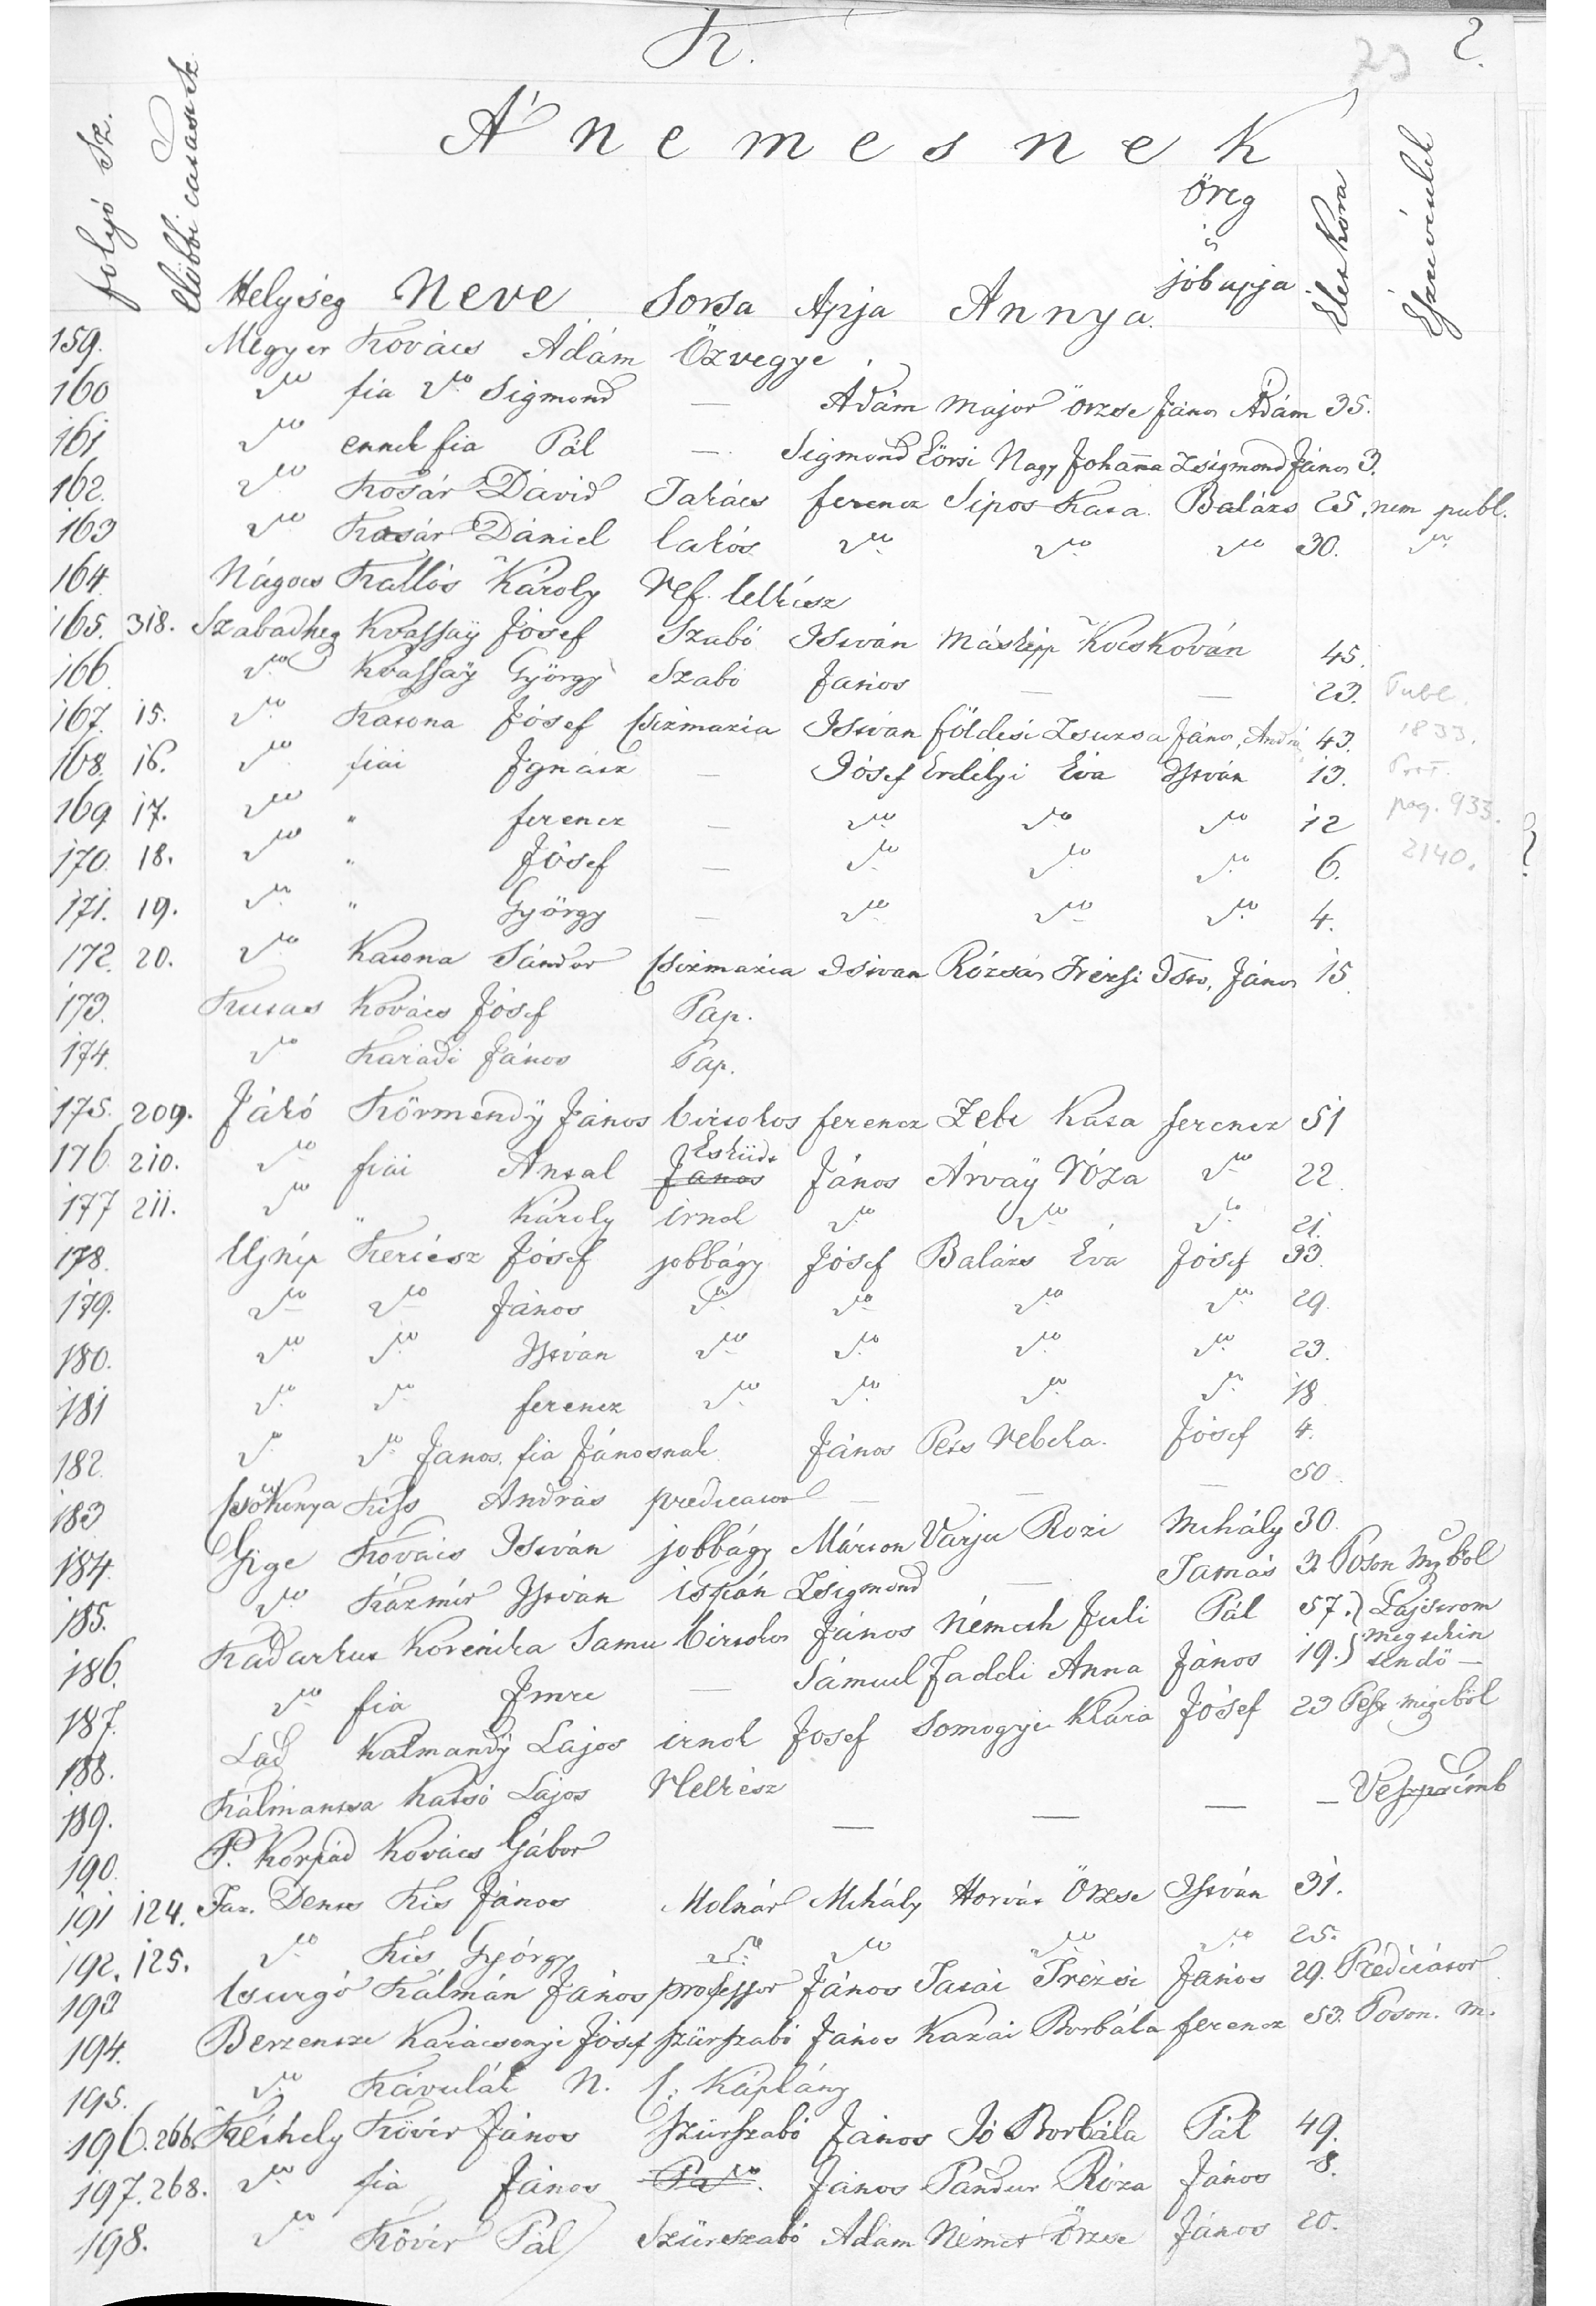 K.
23
2.
A' nemesnek
folyó Sz.
előbbi
Helység Neve Sorsa Apja Annya Öreg s jóbapja Élet Kora Észrevételek
159. Megyer Kovács Ádám Özvegye
160 do fia do Sigmond — Ádám Major Örzse János Ádám 35.
161 do ennek fia Pál — Sigmond Eörsi Nagy Johanna Zsigmond János 3.
162. do Kosár Dávid Takács ferencz Sipos Kata Balázs 25. nem publ.
163 do Kosár Dániel lakós do do do 30. do
164. Nágocs Kallós Károly Ref. lelkész
165. 318. Szabadheg Kvassaÿ Jósef Szabó István Másképp Kocskován 45.
166. do Kvassaÿ György Szabó János — — 23. Publ.
167. 15. do Katona Jósef Csizmazia István földesi Zsuzsa János, Andrá 43. 1833.
168. 16. do fiai Ignácz — Jósef Erdélyi Éva István 13. Prot.
169 17. do " ferencz — do do do 12 pag. 933.
170. 18. do " Jósef — do do do 6. 2140.
171. 19. do " György — do do do 4.
172. 20. do Katona Sándor Csizmazia István Rózsás Trézsi Istv, János 15
173. Kutas Kovács Jósef Pap.
174. do Karádi János Pap.
175. 209. Jákó Körmendÿ János birtokos ferencz Zeke Kata ferencz 51
176. 210. do fiai Antal János Esküdt János Árvaÿ Róza do 22
177 211. do " Károly irnok do do do 21.
178. Ujnép Kertész Jósef jobbágy Jósef Balázs Éva Jósef 33.
179. do do János do do do do 29.
180. do do István do do do do 23.
181 do do ferencz do do do do 18
182. do do Janos, fia Jánosnak János Pets Rebeka Jósef 4.
183 Csökönya Kiss András predicator — — — 50.
184. Gige Kovács István jobbágy Márton Varju Rozi Mihály 30.
185. do Kázmér István ispán Zsigmond — Tamás 3. Poson Mgyböl
186. Kadarkut Korénika Samu birtokos János Németh Juli Pál 57. Lajstrom
187. do fia Imre — Sámuel Jaddi Anna János 19. megtekin tendö —
188. Lad Kálmandÿ Lajos irnok Josef Somogyi Klára Jósef 23 Pest megiböl
189. Kálmántsa Katsó Lajos Rlelkész — — — — Veszprímb
190. P. Korpád Kovács Gábor
191 124. Tar. Dents Kis János Molnár Mihály Horvát Örzse István 31.
192. 125. do Kis György do do do do 25.
193 Csurgó Kálmán János professor János Tatai Trézsi János 29. Prédicátor
194. Berzentze Karácsonyi Jósef szürszabó János Kazai Borbála ferencz 53. Poson. m.
195. do Kávulák N. C: Káplány
196. 266. Kéthely Kövér János Szürszabó János Jó Borbála Pál 49.
197. 268. do fia János János Pandur Róza János 8.
198. do Kövér Pál Szürszabó Adám Német Örzse János 20.